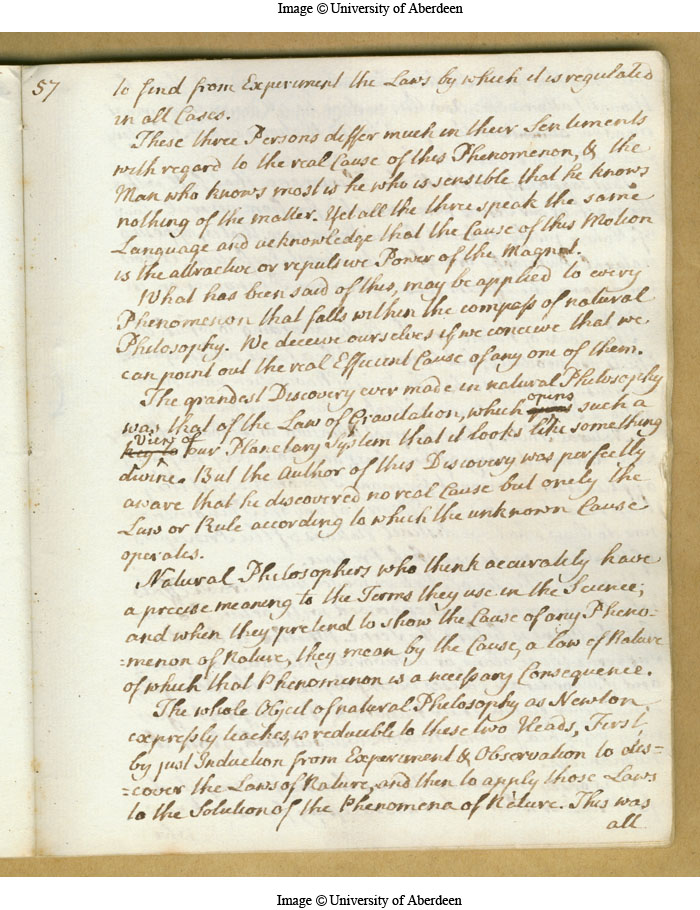 Image © University of Aberdeen
57
to find from Experiment the Laws by which it is regulated
in all Cases.
These three Persons differ much in their Sentiments
with regard to the real Cause of this Phenomenon, & the
Man who knows most is he who is sensible that he knows
nothing of the matter. Yet all the three speak the same
Language and acknowledge that the Cause of this Motion
is the attractive or repulsive Power of the Magnet.
What has been said of this, may be applied to every
Phenomenon that falls within the compass of natural
Philosophy. We deceive ourselves if we conceive that we
can point out the real Efficient Cause of any one of them.
The grandest Discovery ever made in natural Philosophy
opens
was that of the Law of Gravitation, which such a
view of
key to our Planetary System that it looks like something
divine. But the Author of this Discovery was perfectly
aware that he discovered no real Cause but onely the
Law or Rule according to which the unknown Cause
operates.
Natural Philosophers who think accurately have
a precise meaning to the Terms they use in the Science;
and when they pretend to show the Cause of any Pheno=
=menon of Nature, they mean by the Cause, a law of Nature
of which that Phenomenon is a necessary Consequence.
The whole Object of natural Philosophy as Newton
expressly teaches, is reducible to these two Heads, First,
by just Induction from Experiment & Observation to dis=
=cover the Laws of Nature, and then to apply those Laws
to the Solution of the Phenomena of Nature. This was
all
Image © University of Aberdeen